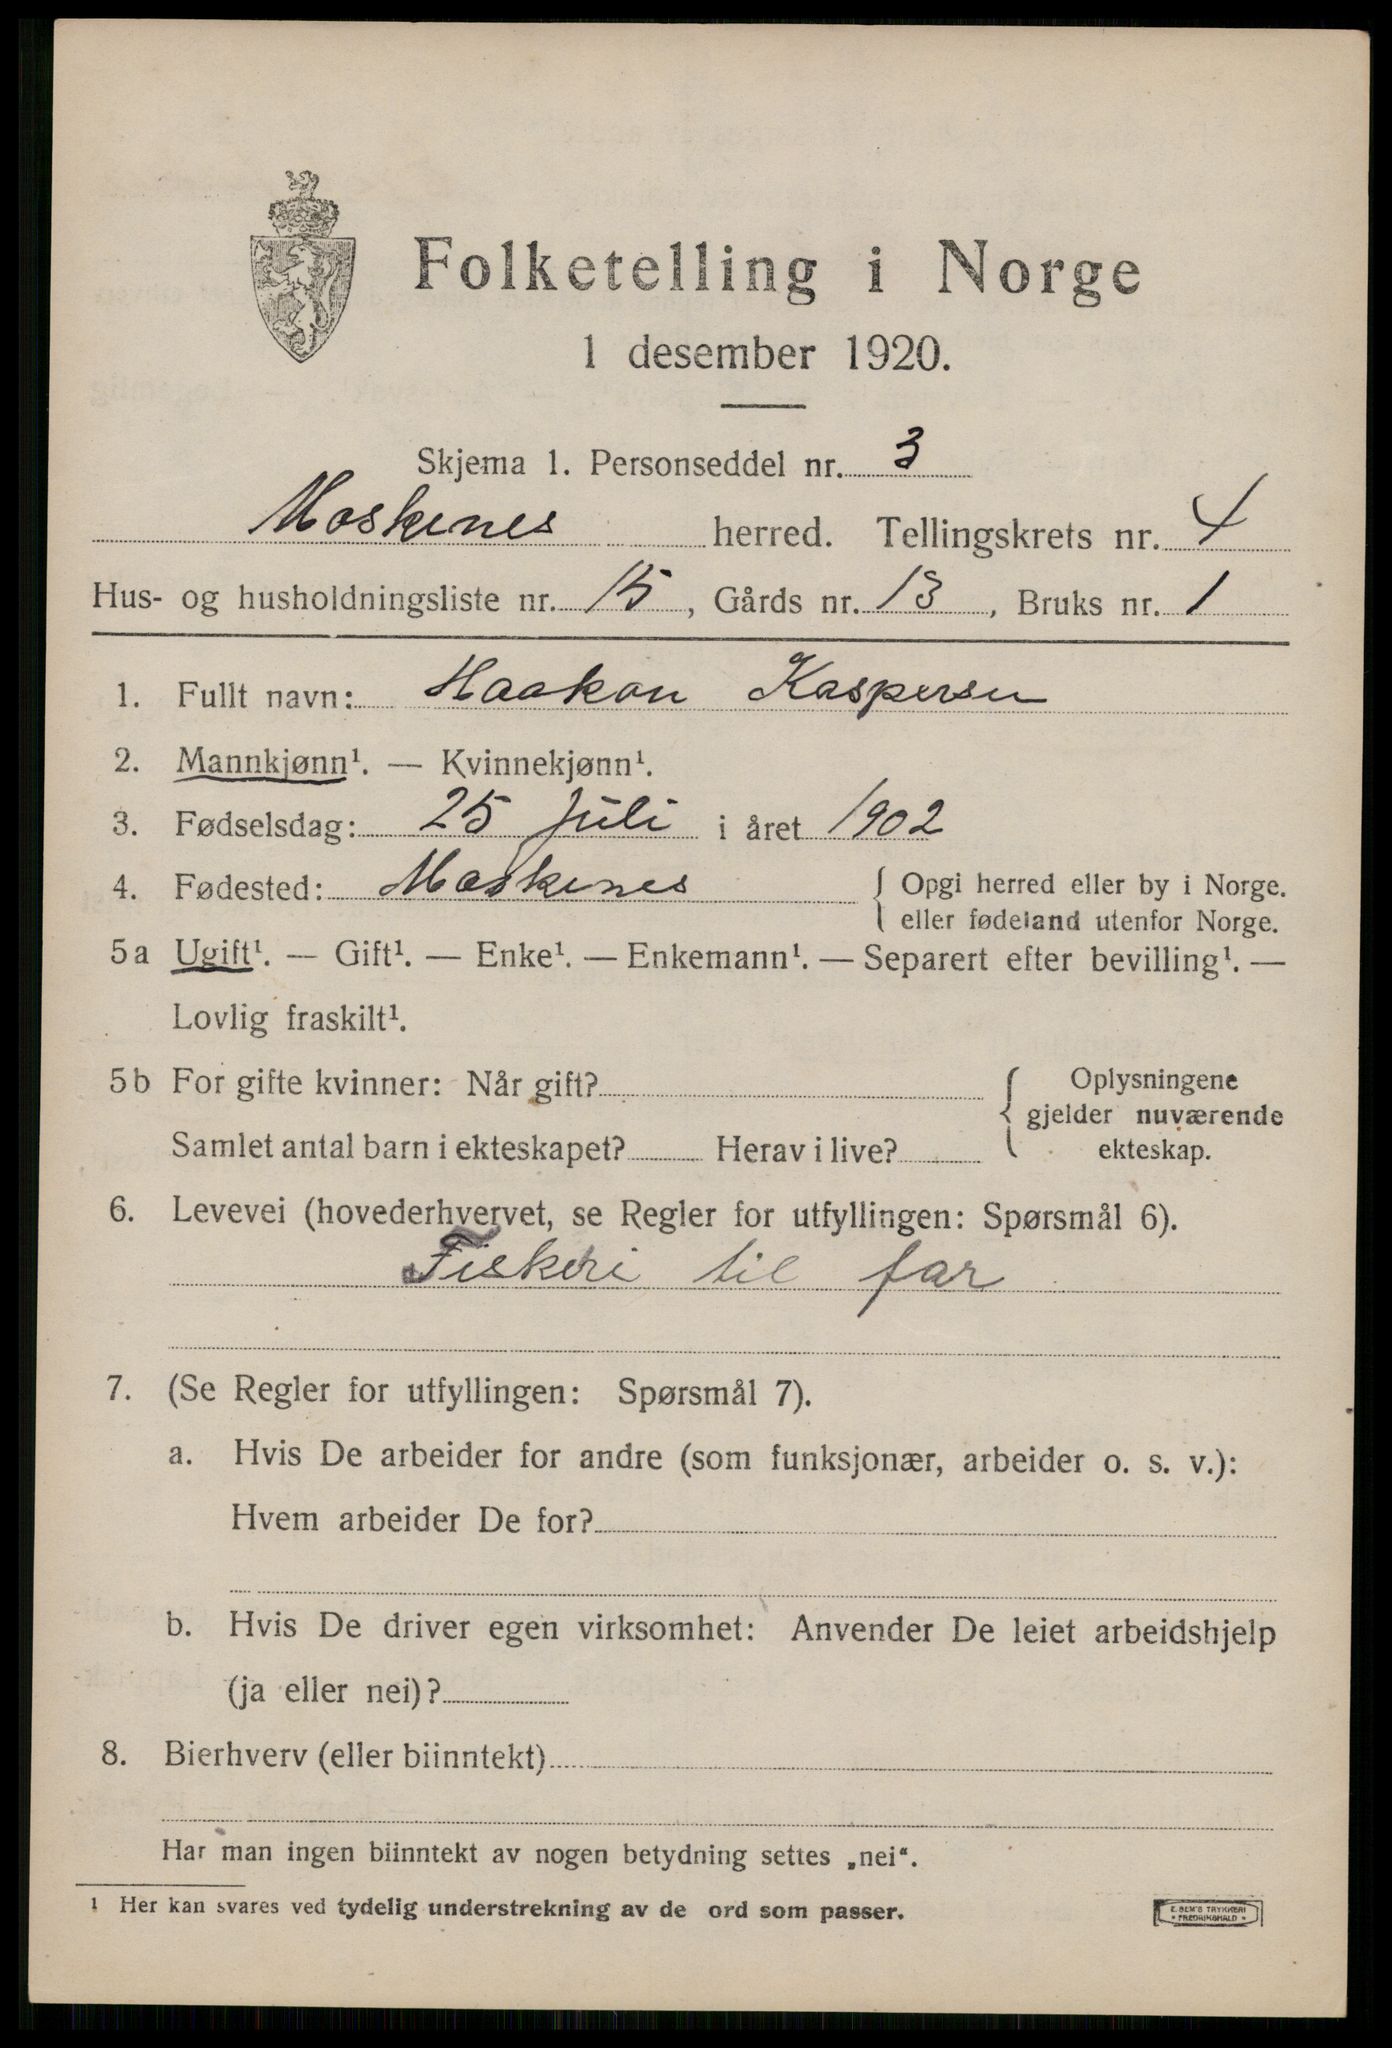 Folketelling i Norge
1 desember 1920.
Skjema 1. Personseddel nr. 3
Moskenes herred. Tellingskrets nr. 4
Hus- og husholdningsliste nr. 15, Gårds nr. 13, Bruks nr. 1
1. Fullt navn: Haakon Kaspersen
2. Mannkjønn¹. — Kvinnekjønn¹.
3. Fødselsdag: 25 Juli i året 1902
4. Fødested: Moskenes { Opgi herred eller by i Norge.
eller fødeland utenfor Norge.
5a Ugift¹. — Gift¹. — Enke¹. — Enkemann¹. — Separert efter bevilling¹. —
Lovlig fraskilt¹.
5b For gifte kvinner: Når gift? { Oplysningene
gjelder nuværende
Samlet antal barn i ekteskapet? Herav i live? ekteskap.
6. Levevei (hovederhvervet, se Regler for utfyllingen: Spørsmål 6).
Fiskeri til far
7. (Se Regler for utfyllingen: Spørsmål 7).
a. Hvis De arbeider for andre (som funksjonær, arbeider o. s. v.):
Hvem arbeider De for?
b. Hvis De driver egen virksomhet: Anvender De leiet arbeidshjelp
(ja eller nei)?
8. Bierhverv (eller biinntekt)
Har man ingen biinntekt av nogen betydning settes „nei“.
1 Her kan svares ved tydelig understrekning av de ord som passer.
E. SEM'S TRYKKERI
* FREDRIKSHALD *